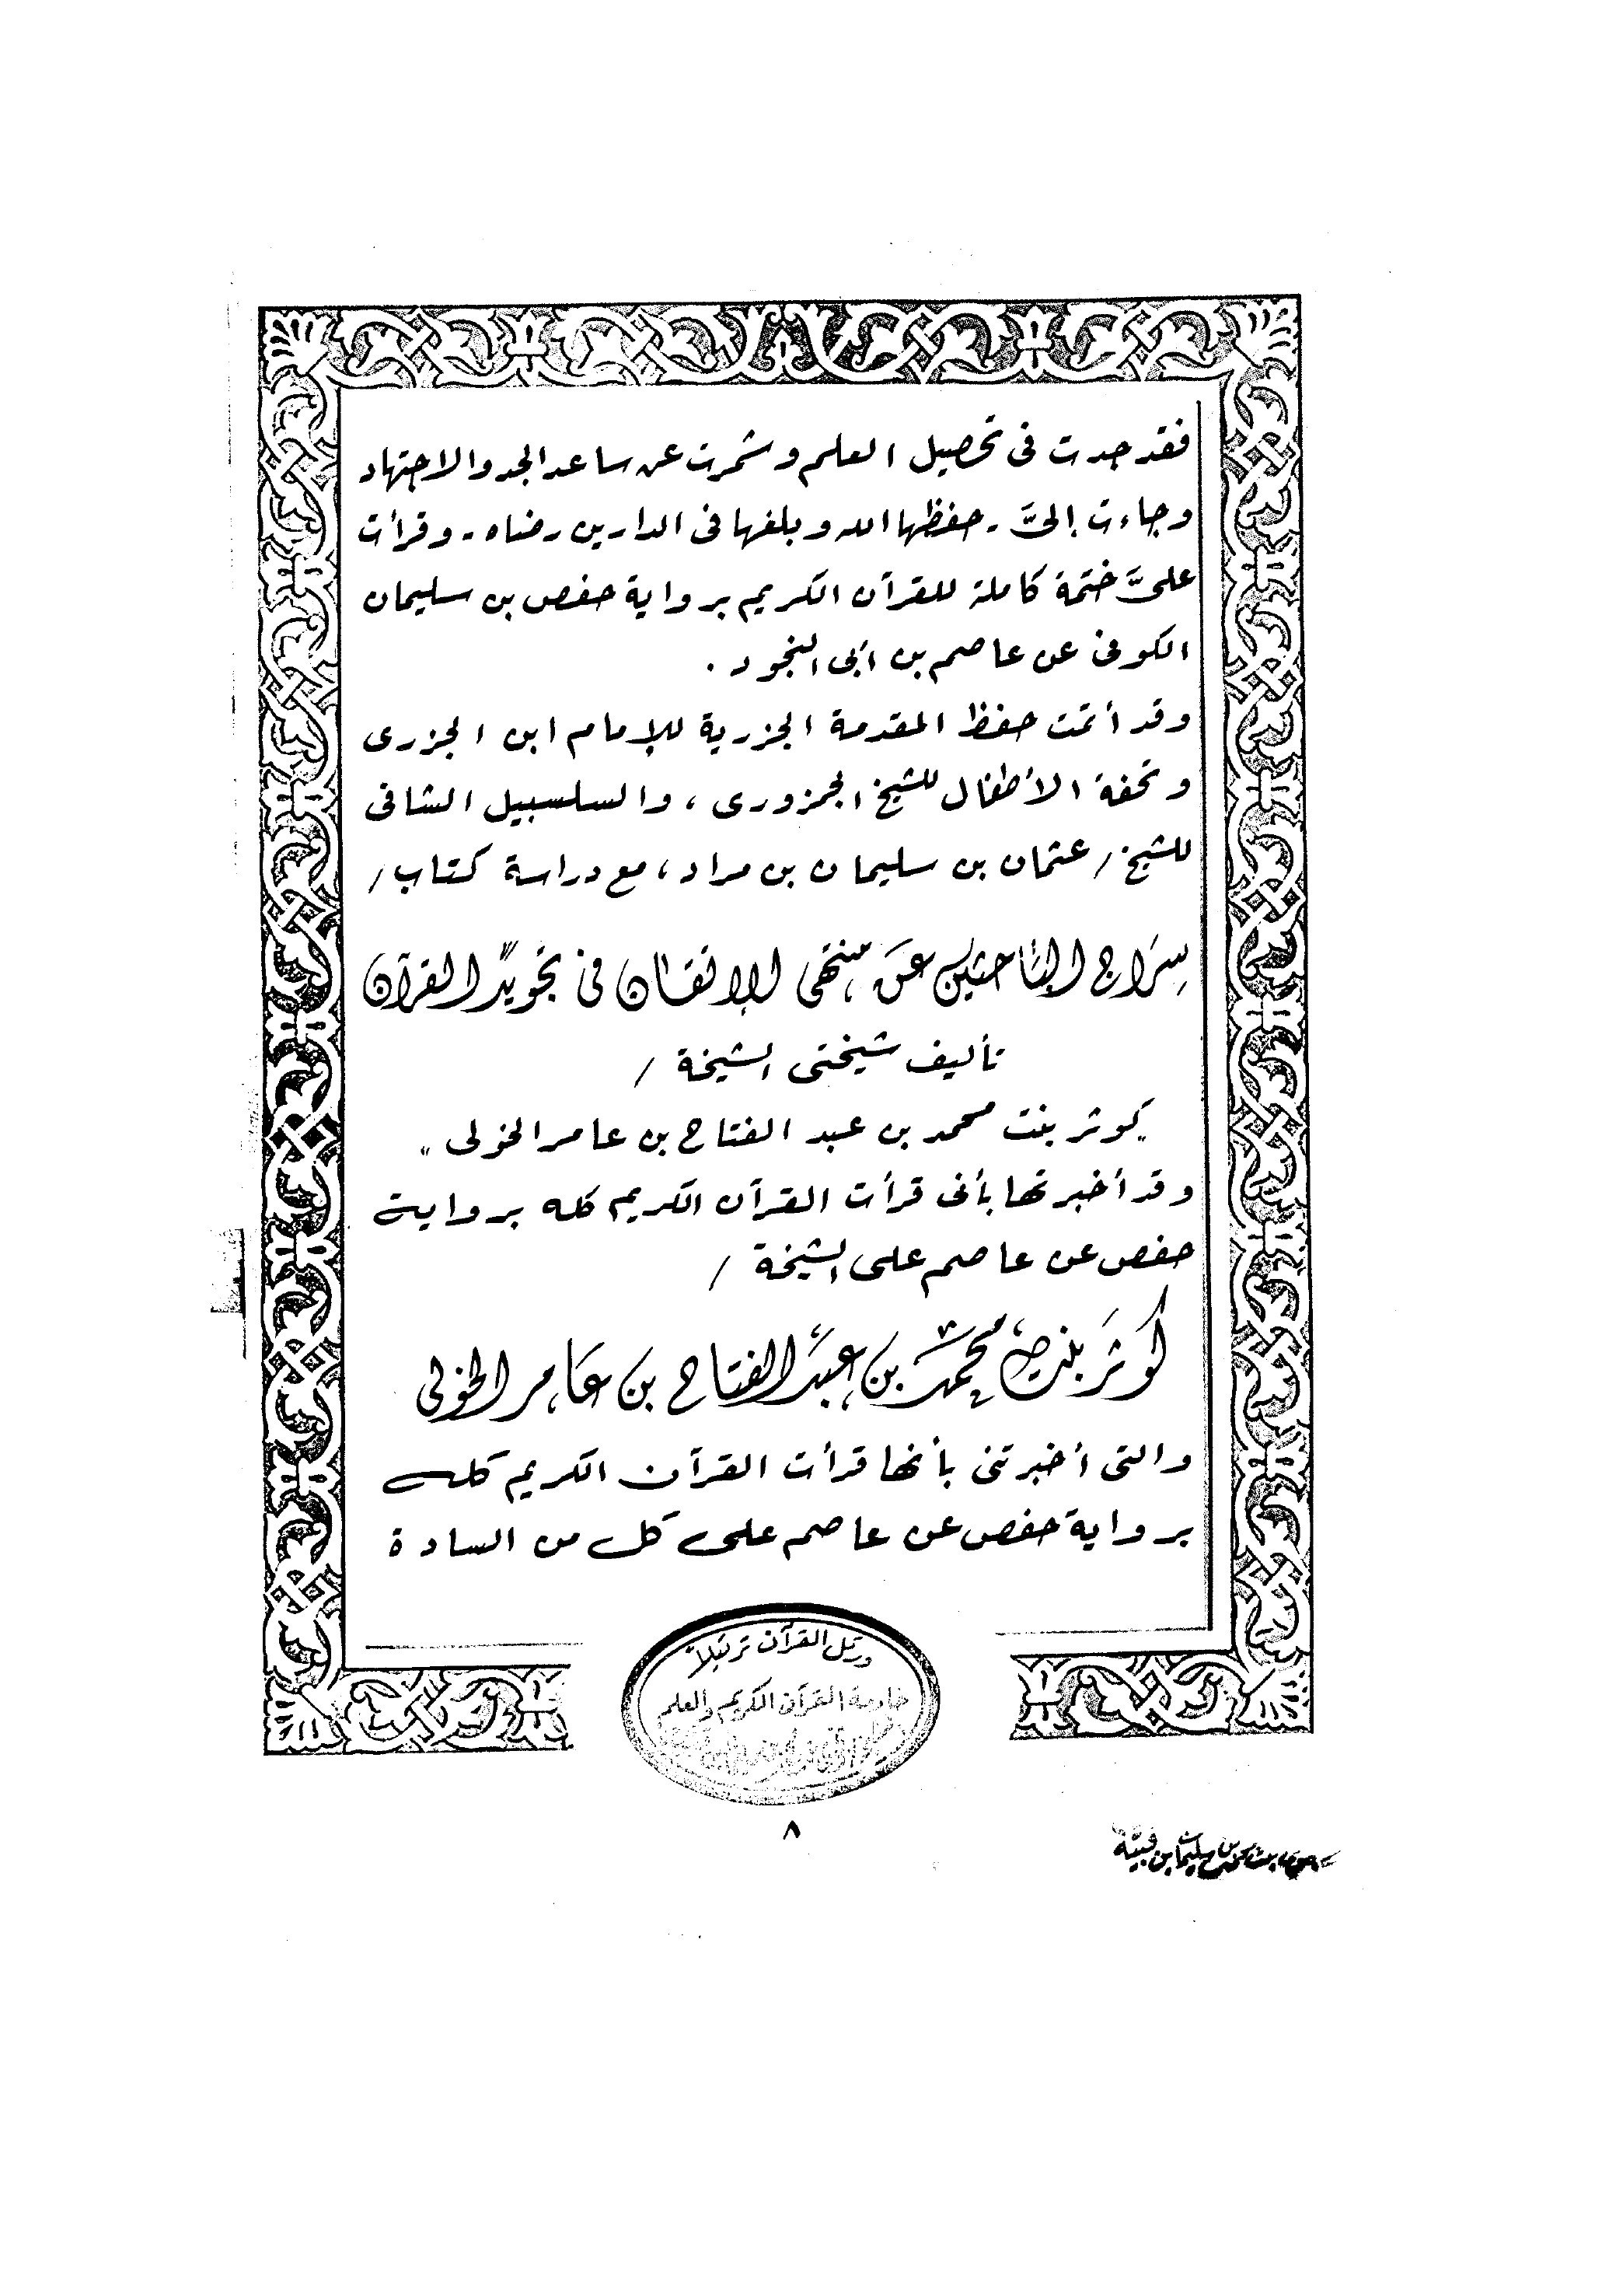 فقد جدت فى تحصيل العلم وشمرت عن ساعد الجد والاجتهاد
وجاءت إلىَّ - حفظها الله وبلغها فى الدارين رضاه - وقرأت
علىَّ ختمة كاملة للقرآن الكريم برواية حفص بن سليمان
الكوفى عن عاصم بن أبى النجود .
وقد أتمت حفظ المقدمة الجزرية للإمام ابن الجزرى
وتحفة الأطفال للشيخ الجمزورى ، والسلسبيل الشافى
للشيخ / عثمان بن سليمان بن مراد ، مع دراسة كتاب /
سِرَاج البَاحثين عَن منتهى الإتقان فى تجويد القرآن
تأليف شيختى الشيخة /
" كوثر بنت محمد بن عبد الفتاح بن عامر الخولى "
وقد أخبرتها بأنى قرأت القرآن الكريم كله برواية
حفص عن عاصم على الشيخة /
كوثَر بنت محمَّد بن عَبد الفتاح بن عَامر الخولى
والتى أخبرتنى بأنها قرأت القرآن الكريم كله
برواية حفص عن عاصم على كل من السادة
ورتل القرآن ترتيلاً
خادمة القرآن الكريم والعلم
٨
بنت محمد بن سليمان بن قبية